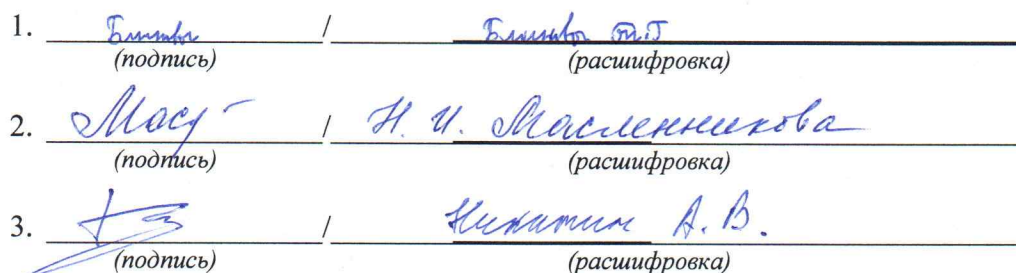 1. /
(подпись) (расшифровка)
2. Масл / Н. И. Масленникова
(подпись) (расшифровка)
3. / Никитин А. В.
(подпись) (расшифровка)